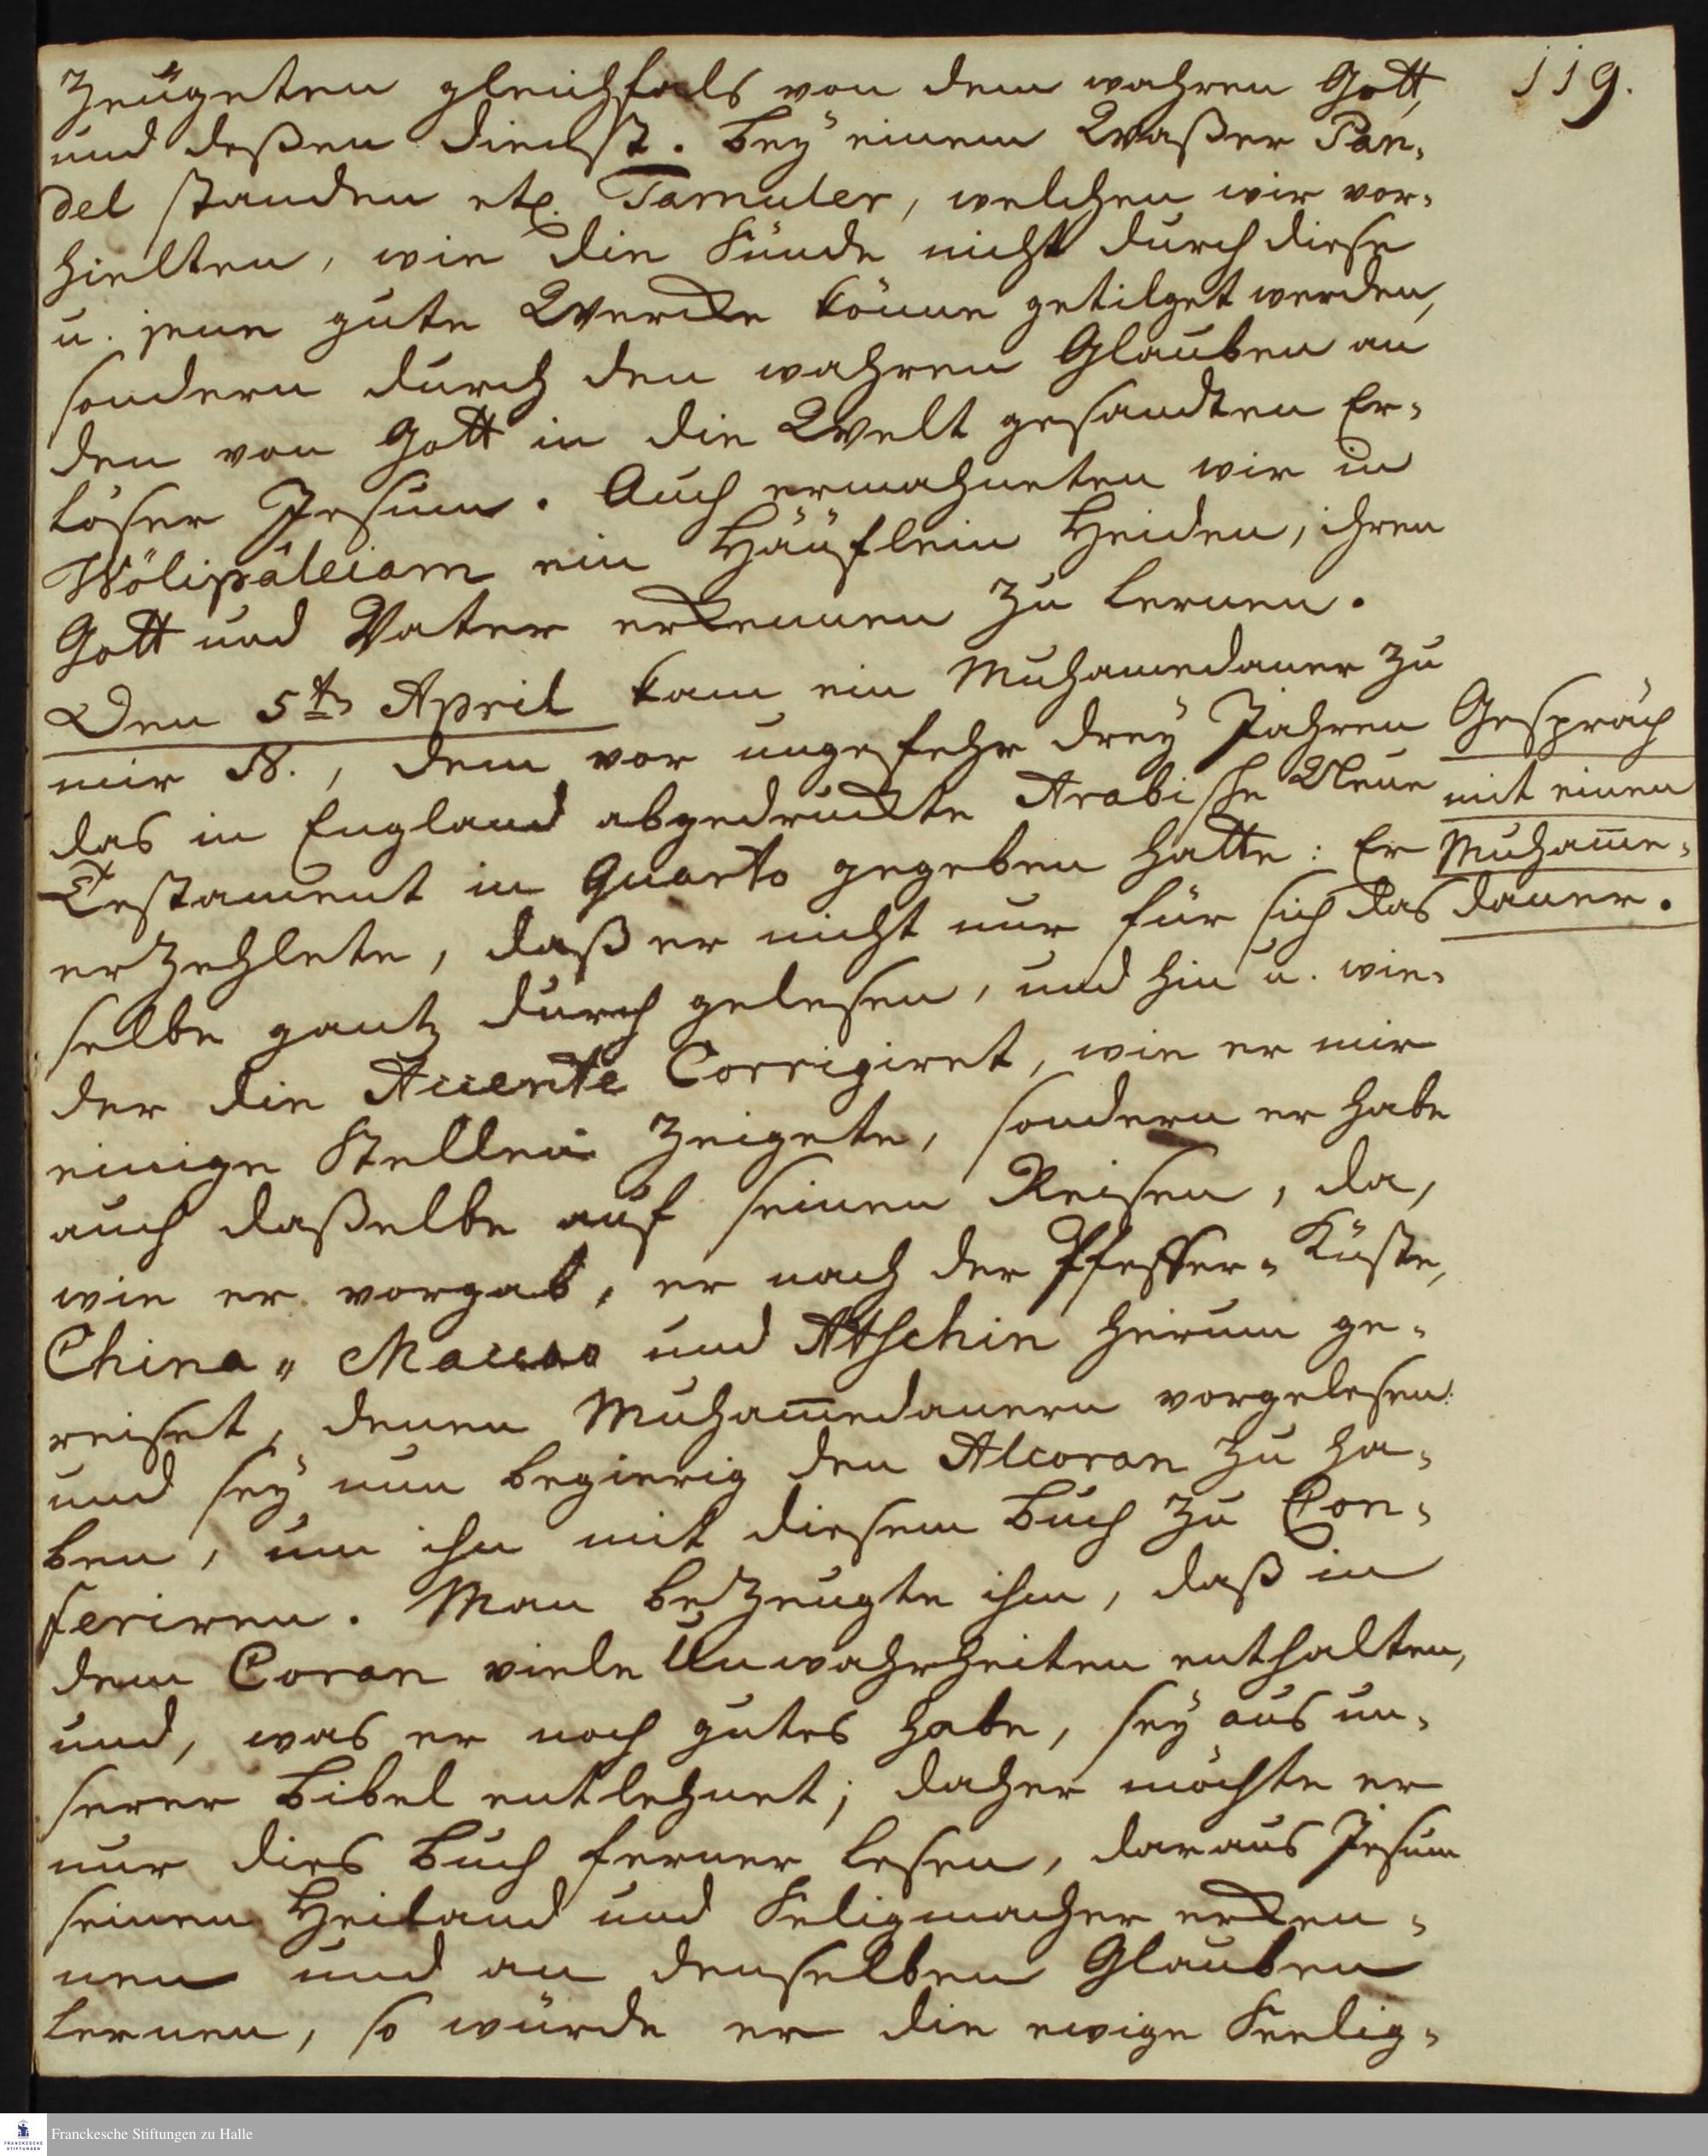 119.
Zeügeten gleichfals von dem wahren Gott,
und deßen Dienst. Bey einem Waßer Pan-
del standen etc. Tamuler, welchen wir vor-
hielten, wie die Sünde nicht durch diese
u. jene gute Wercke könne getilget werden,
sondern durch den wahren Glauben an
den von Gott in die Welt gesandten Er-
löser Jesum. Auch ermahneten wir in
Wölipâleiam ein Häüflein Heiden, ihren
Gott und Vater erkennen zu lernen.
Den 5ten April kam ein Muhamedaner zu
mir N., dem vor ungefehr drey Jahren
das in England abgedruckte Arabische Neue
Testament in Quarto gegeben hatte: Er
erzehlete, daß er nicht nur für sich das
selbe gantz durch gelesen, und hin u. wie-
der die Accente Corrigiret, wie er mir
einige Stellen zeigete, sondern er habe
auch daßelbe auf seinen Reisen, da,
wie er vorgab, er nach der Pfeffer-Küste,
China- Maccao und Atschin herum ge-
reiset, denen Muham̅edanern vorgelesen:
und sey nun begierig den Alcoran zu ha-
ben, um ihn mit diesem Buch zu Con-
feriren. Man bezeugte ihm, daß in
dem Coran viele Unwahrheiten enthalten,
und, was er noch gutes habe, sey aus un-
serer Bibel entlehnet; daher möchte er
nur dies Buch ferner lesen, daraus Jesum
seinen Heiland und Seligmacher erken-
nen und an denselben Glauben
lernen, so würde er die ewige Seelig-
Gespräch
mit einen
Muham̅e-
daner.
Franckesche Stiftungen zu Halle